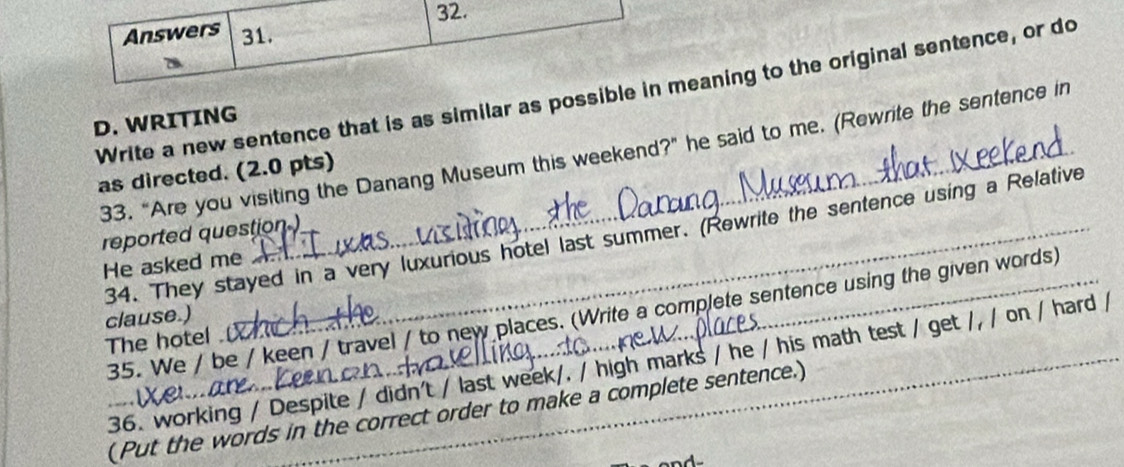 Answers 31. 32.
D. WRITING
Write a new sentence that is as similar as possible in meaning to the original sentence, or do
as directed. (2.0 pts)
33. "Are you visiting the Danang Museum this weekend?" he said to me. (Rewrite the sentence in
reported question.)
He asked me if I was visiting the Danang Museum that weekend.
34. They stayed in a very luxurious hotel last summer. (Rewrite the sentence using a Relative
clause.)
The hotel which the
35. We / be / keen / travel / to new places. (Write a complete sentence using the given words)
We are keen on travelling to new places
36. working / Despite / didn't / last week/. / high marks / he / his math test / get /, / on / hard /
(Put the words in the correct order to make a complete sentence.)